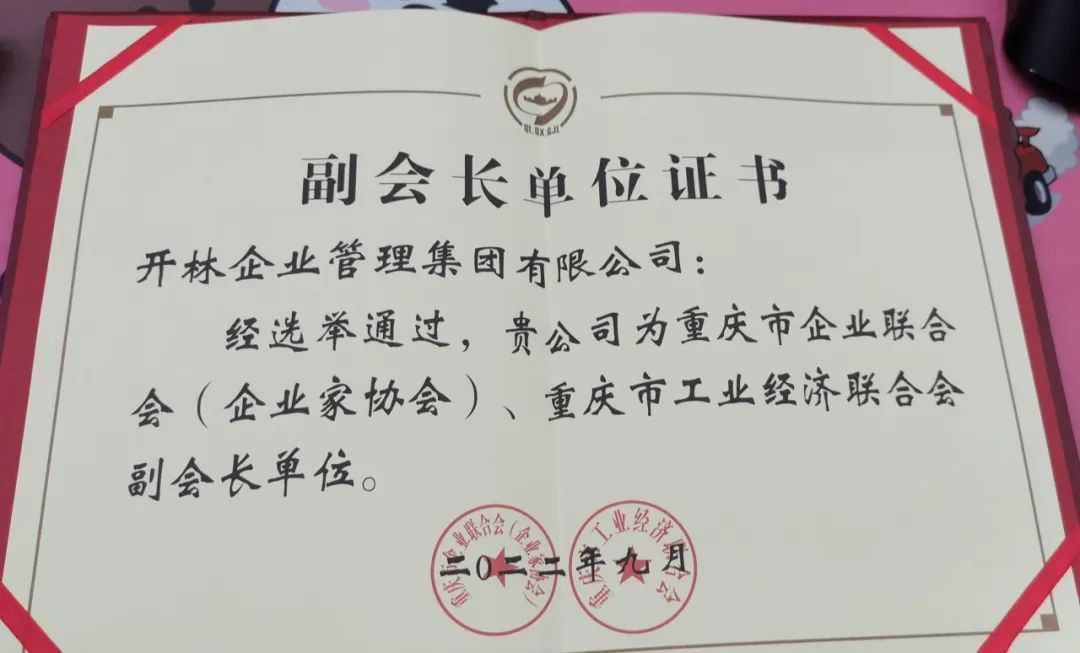 QL.QX.GJL
副会长单位证书
开林企业管理集团有限公司：
经选举通过，贵公司为重庆市企业联合
会（企业家协会）、重庆市工业经济联合会
副会长单位。
重庆市企业联合会（企业家协会）
重庆市工业经济联合会
二〇二二年九月